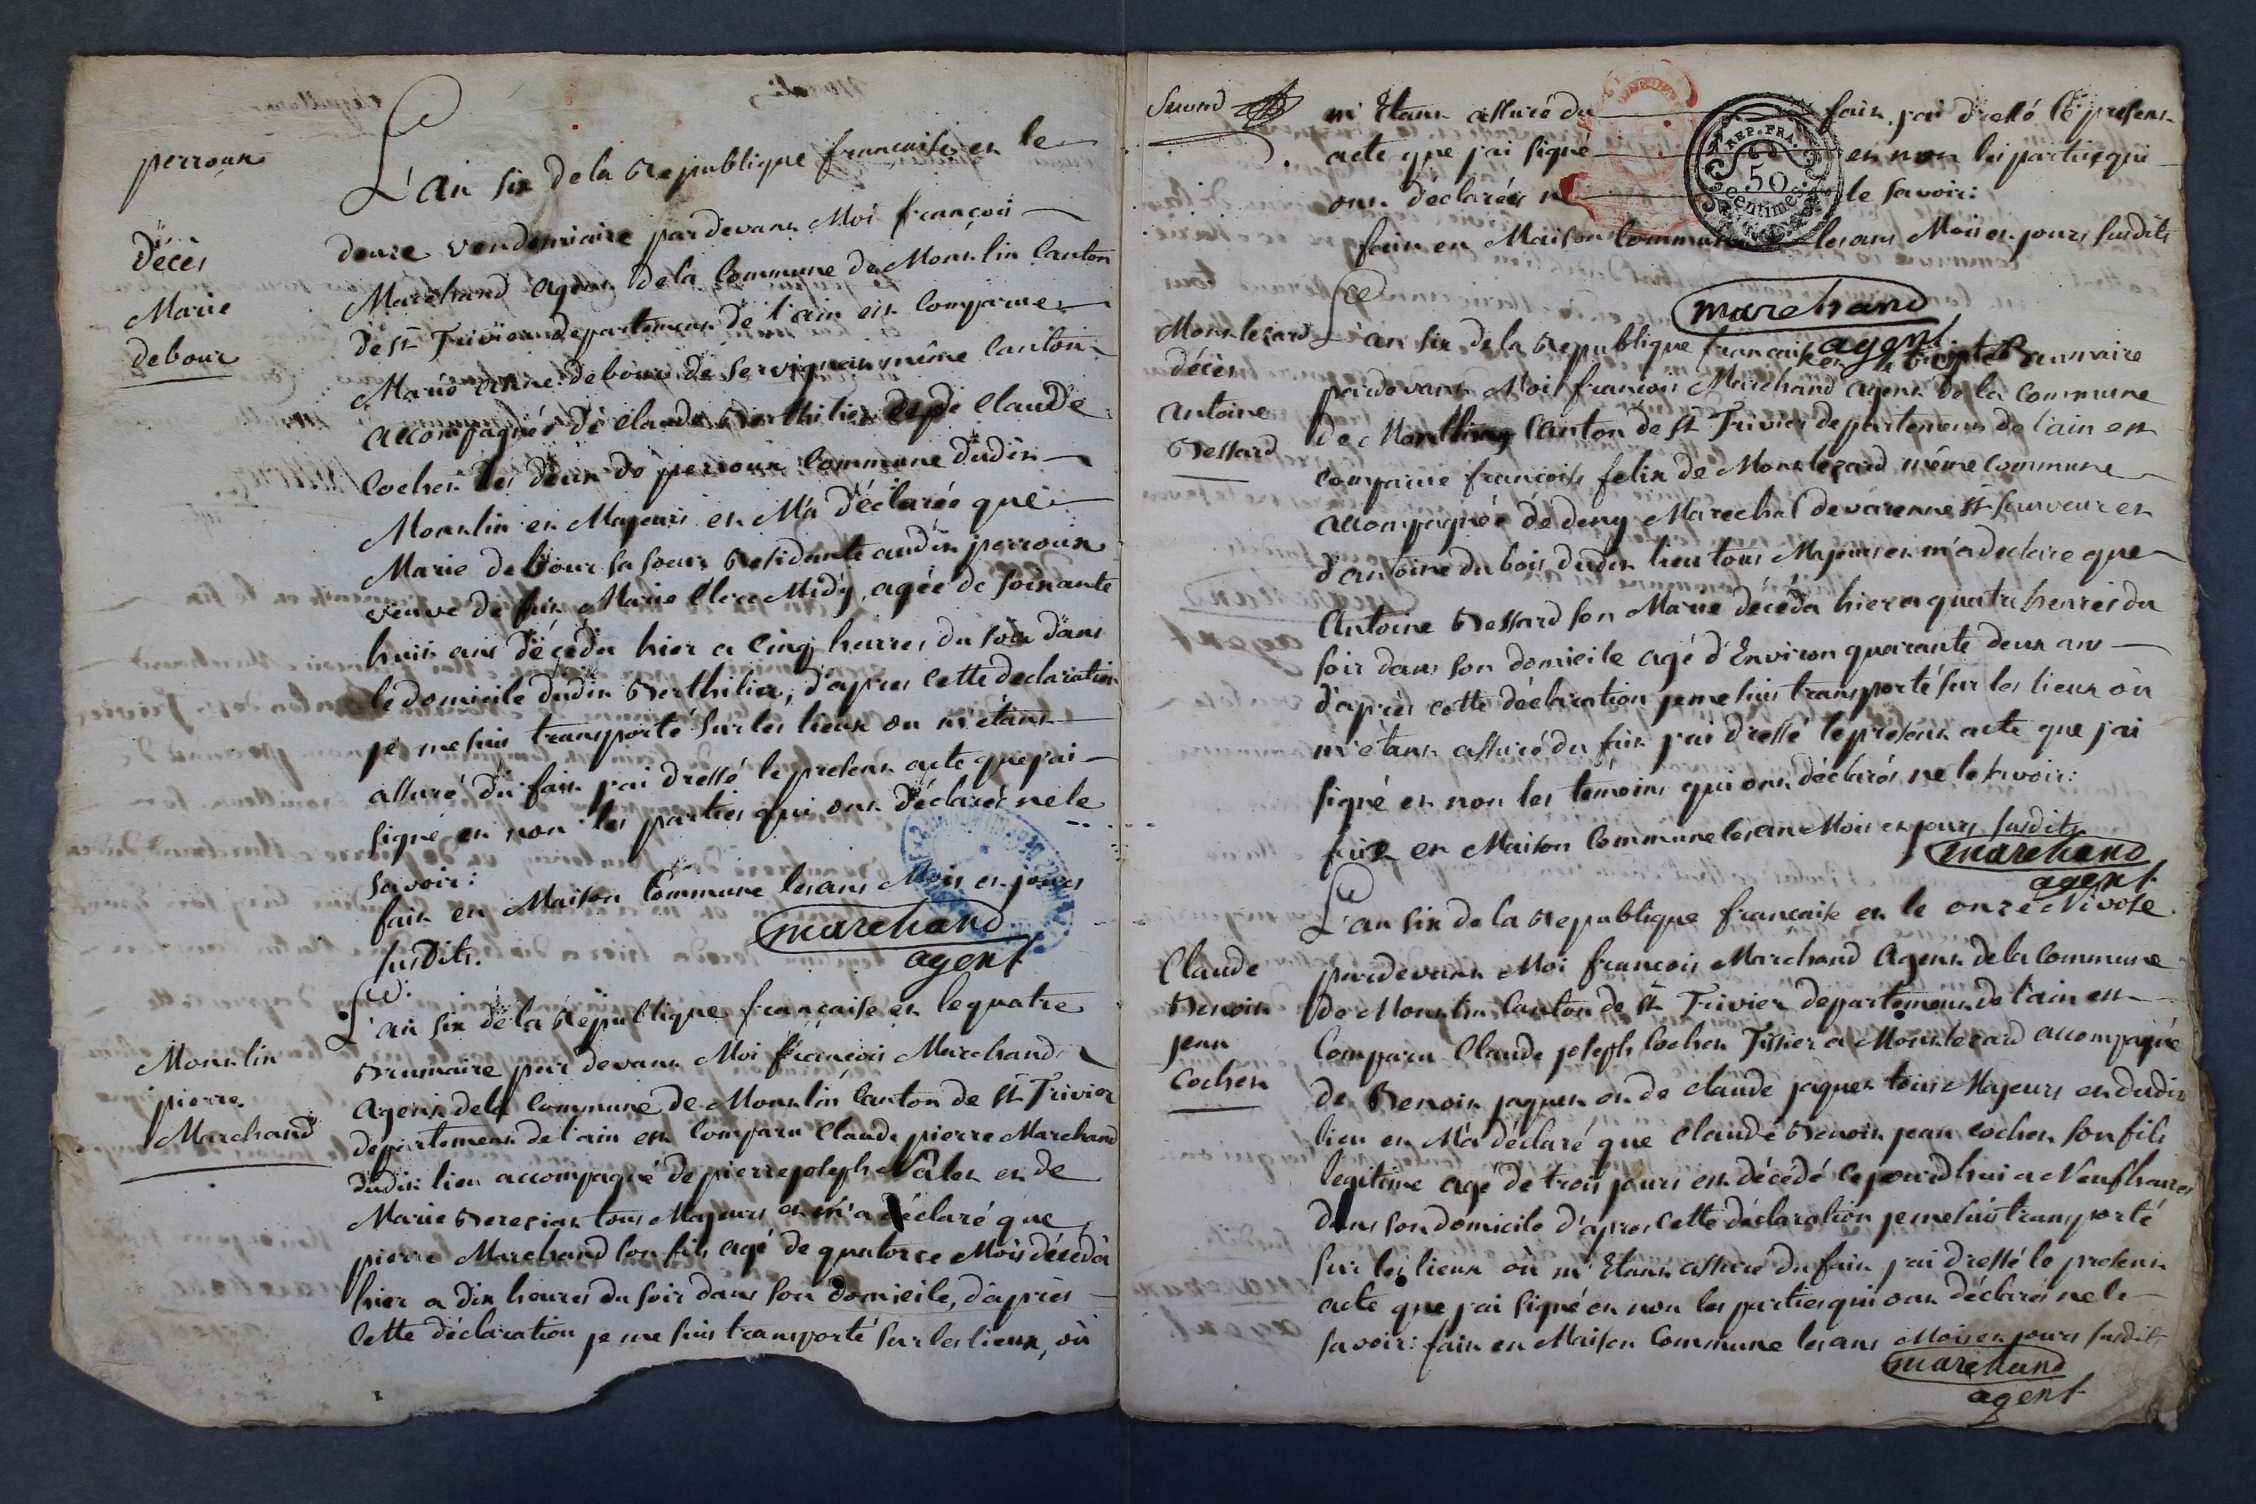 perroux
décès
Marie
debour
L'an six de la Republique française et le
douze vendemiaire pardevant Moi françois
Marchand agent de la Commune de Montlin Canton
de St Trivier departement de l'ain est comparue
Marie anne debour de servignat même Canton
accompagnée de Claude Berthilier et de Claude
Cochet les deux de perroux Commune dudit
Montlin et Majeurs et M'a déclarée que
Marie debour sa soeur Residante audit perroux
veuve de feu Marie Midy, agée de soixante
huit ans décéda hier a cinq heures du soir dans
le domicile dudit Berthilier, d'apres cette declaration
je me suis transporté sur les lieux ou m'étant
assuré du fait j'ai dressé le present acte que j'ai
signé et non les parties qui ont déclarés ne le
savoir:
fait en Maison Commune les ans Mois et jours
susdits.
marchand
agent
Montlin
pierre
Marchand
L'an six de la Republique française et le quatre
Brumaire par devant Moi françois Marchand
agent de la Commune de Montlin Canton de St Trivier
departement de l'ain est Comparu Claude pierre Marchand
dudit lieu accompagné de pierre joseph et de
Marie tous Majeurs et m'a déclaré que
pierre Marchand son fils agé de quatorze Mois décéda
hier a dix heures du soir dans son domicile, d'après
Cette déclaration je me suis transporté sur les lieux, où
Second
m'Etant assuré du fait j'ai dressé le present
acte que j'ai signé et non les parties qui
ont déclarés ne le savoir:
fait en Maison Commune les ans Mois et jours susdits
REP. FRA.
50
Centimes
marchand
agent
Montlezard
décès
antoine
Bessard
L'an six de la Republique française et le vingt Brumaire
pardevant Moi françois Marchand agent de la Commune
de Canton de St Trivier departement de l'ain est
comparue françoise felix de Montlezard même commune
accompagnée de deny Marechal de varenne St Sauveur et
d'antoine dubois dudit lieu tous Majeurs et m'a declare que
Antoine Bessard son Marie décéda hier a quatre heures du
soir dans son domicile agé d'Environ quarante deux ans
d'après cette déclaration je me suis transporté sur les lieux où
m'étant assuré du fait j'ai dressé le présent acte que j'ai
signé et non les temoins qui ont déclarés ne le savoir:
fait en Maison Commune les an Mois et jours susdits
marchand
agent
Claude
Benoit
jean
Cochet
L'an six de la Republique française et le onze Nivose
pardevant Moi françois Marchand Agent de la Commune
de Montlin Canton de St Trivier departement de l'ain est
Comparu Claude joseph Cochet Tissier a Montlezard accompagné
de Benoit jaquet et de claude jaquet tous Majeurs et dudit
lieu et M'a déclaré que Claude Benoit jean cochet son fils
legitime agé de trois jours est décédé cejourd'hui a Neuf heures
dans son domicile d'apres cette déclaration je me suis transporté
sur les lieux où m'Etant assuré du fait j'ai dressé le present
acte que j'ai signé et non les parties qui ont déclarés ne le
savoir: fait en Maison Commune les ans Mois et jours susdits
marchand
agent